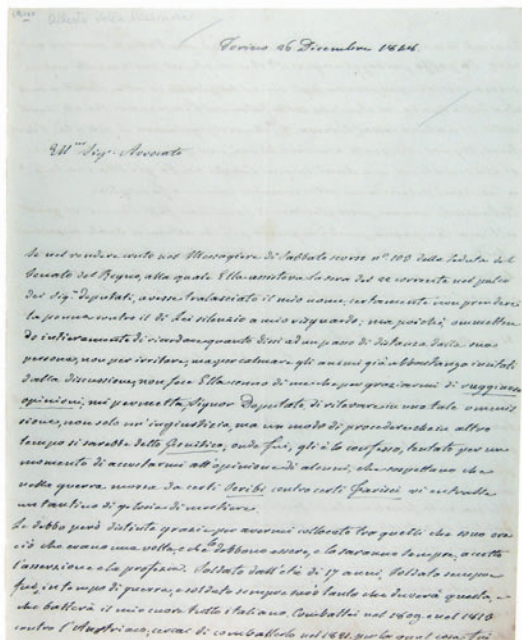 Torino 26 Dicembre 1848
Ill.mo Sig.r Avvocato
Se nel rendere conto nel Messagiere di Sabbato scorso n.o 103 della Seduta del
Senato del Regno, alla quale Ella assisteva la sera del 22 corrente nel palco
dei Sig.ri deputati, avesse tralasciato il mio nome, certamente non prenderei
la penna contro il di Lei silenzio a mio riguardo; ma poichè, ommetten
do intieramente di quanto dissi ad un passo di distanza dalla sua
persona, non per irritare, ma per calmare gli animi già abbastanza irritati
dalla discussione, non fece Ella cenno di me che per graziarmi di rugginosa
opinioni, mi permetta, Signor Deputato, di rilevare in una tale ommis
sione, non solo un'ingiustizia, ma un modo di procedere che in altro
tempo si sarebbe detto Gesuitico, onde fui, gli è lo confesso, tentato per un
momento di accostarmi all'opinione di alcuni, che sospettano che
nella guerra mossa da certi Scribi contro certi Farisei vi entrasse
un tantino di gelosia di mestiere.
Le debbo però distinte grazie per avermi collocato tra quelli che sono ora
ciò che erano una volta, e che debbono essere, e lo saranno sempre, accetto
l'asserzione e la profezia. Soldato dall'età di 17 anni, soldato sempre
fui, in tempo di guerra, e soldato sempre sarò tanto che durerà questa, e
che batterà il mio cuore tutto italiano. Combattei nel 1809 e nel 1813
contro l'Austriaco, cercai di combatterlo nel 1821, per la qual cosa fui